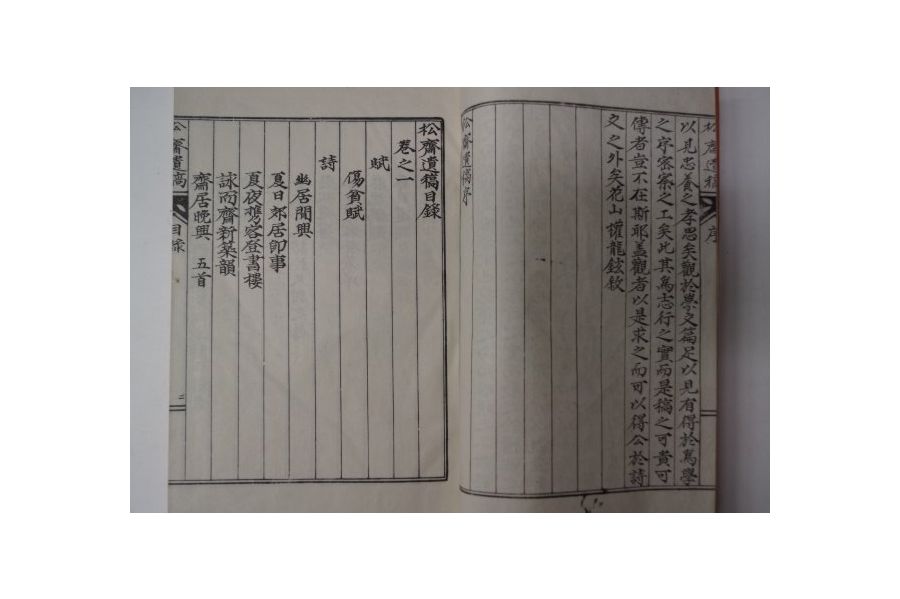 松齋遺稿序
以見忠養之孝思矣觀於祭文篇足以見有得於爲學
之序密察之工矣此其爲志行之實而是稿之可貴可
傳者豈不在斯耶盖觀者以是求之而可以得公於詩
文之外矣花山權龍鉉敘
松齋遺稿序
松齋遺稿目錄
卷之一
賦
傷貧賦
詩
幽居閒興
夏日郊居卽事
夏夜携客登書樓
詠而齋新築韻
齋居晚興 五首
松齋遺稿 目錄 二